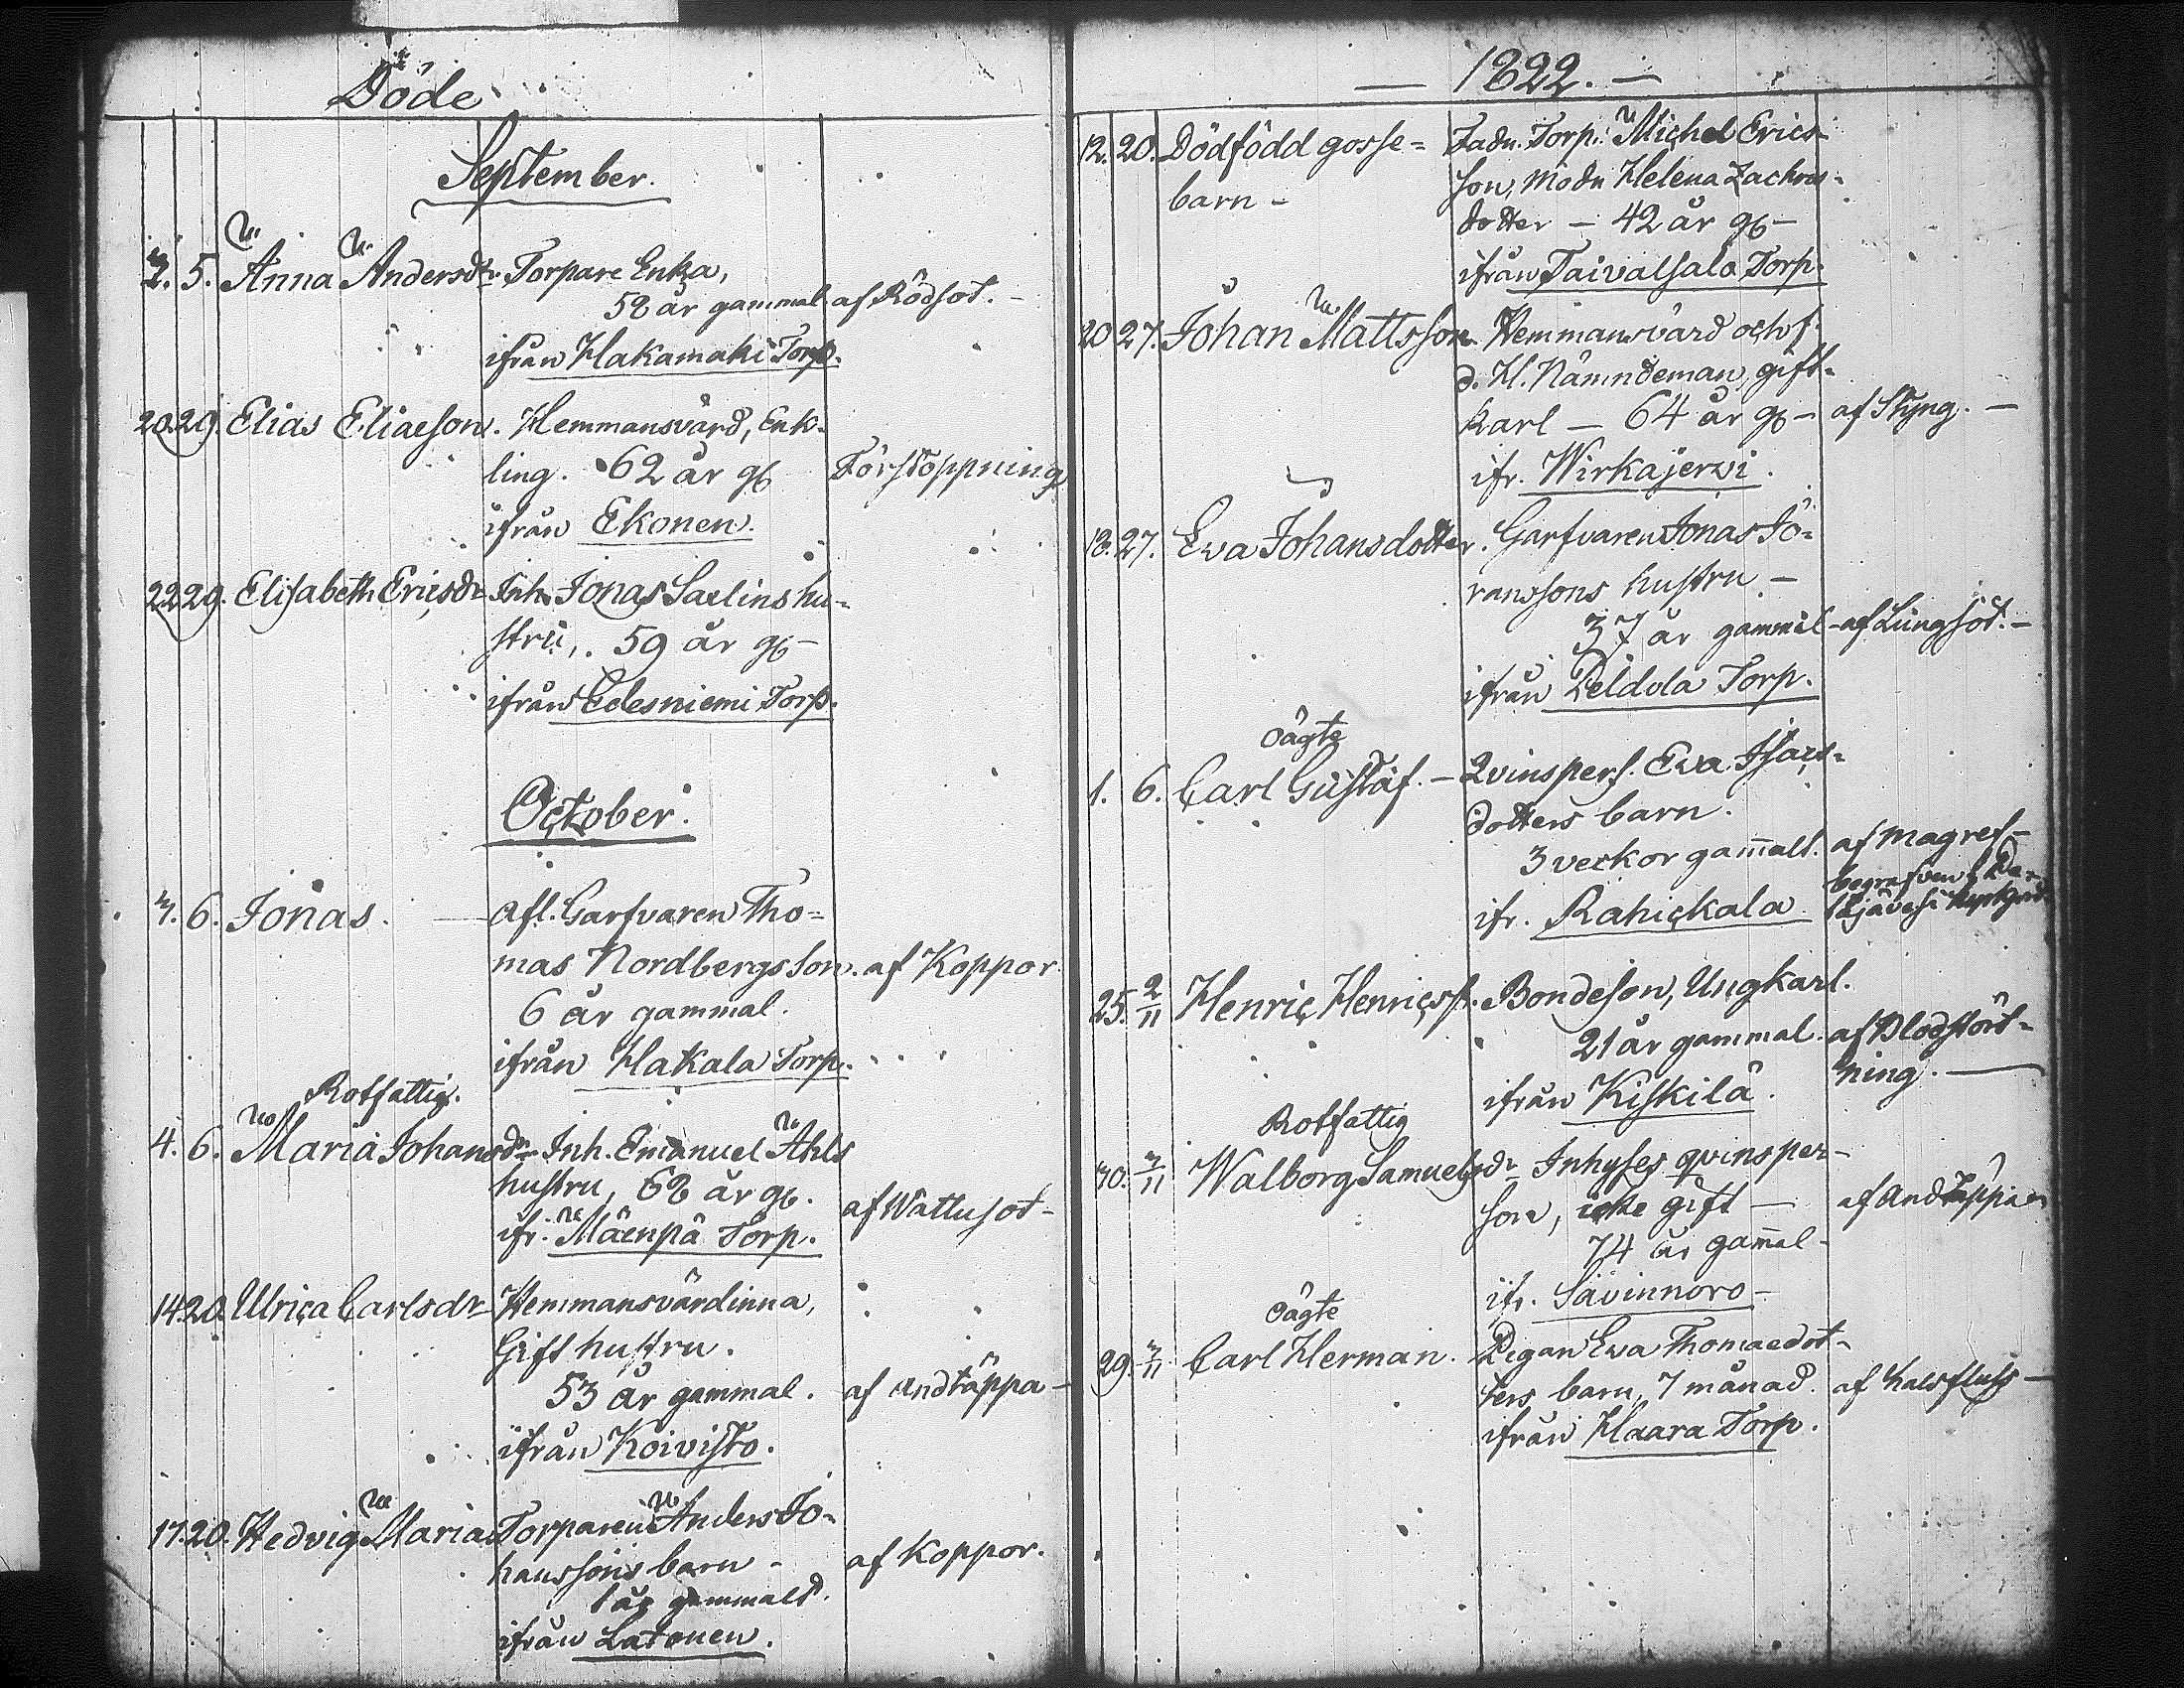 Döde
September.
3. 5. Anna Andersdr Torpare Enka,
58 år gammal af Rödsot. -
ifrån Hakamaki Torp.
20. 29. Elias Eliaeson. Hemmansvärd, Enk-
ling. 62 år gl Förstoppning
ifrån Ekonen.
22. 29. Elisabeth Ericsdr Inh. Jonas Saelins hu-
stru, 59 år gl -
ifrån Torp.
October.
3. 6. Jonas. afl. Garfvaren Tho-
mas Nordbergs son. af Koppor
6 år gammal.
ifrån Hakala Torp.
Rotfattig.
4. 6. Maria Johansdr Inh. Emanuel Åhls
hustru, 68 år gl. af Wattusot -
ifr. Mäenpä Torp.
14. 20. Ulrica Carlsdr Hemmansvärdinna,
Gift hustru.
53 år gammal. af andtäppa -
ifrån Koivisto.
17. 20. Hedvig Maria Torparen Anders Jo-
hanssons barn - af Koppor.
1 år gammalt.
ifrån Latonen.
- 1822. -
12. 20. Dödfödd gosse- Fadn. Torp. Michel Erics-
barn - son, modn Helena Zachris-
dotter - 42 år gl -
ifrån Taivalsalo Torp.
20 27. Johan Mattsson. Hemmansvärd och f.
d. H. Nämndeman, gift-
karl - 64 år gl - af Styng. -
ifr. Wirkajerwi.
18. 27. Eva Johansdotter. Garfvaren Jonas Jö-
ranssons hustru -
37 år gammal - af Lungsot. -
ifrån Peldola Torp.
oägte
1. 6. Carl Gustaf. - Qvinspers. Eva Isacs-
dotters barn.
3 veckor gammalt. af magref -
ifr. Rahickala begrafven i
kyrkgård
25. 2/11 Henric Henricss. Bondeson, Ungkarl.
21 år gammal. af Blodstört-
ifrån Kiskilä. ning. -
Rotfattig
30. 3/11 Walborg Samuelsdr Inhyses qvinsper-
son, icke gift - af andtäppa
74 år gammal -
ifr. Savinnoro -
oägte
29. 3/11 Carl Herman. Pigan Eva Thomaedot-
ters barn, 7 månad. af halsfluss -
ifrån Haara Torp.